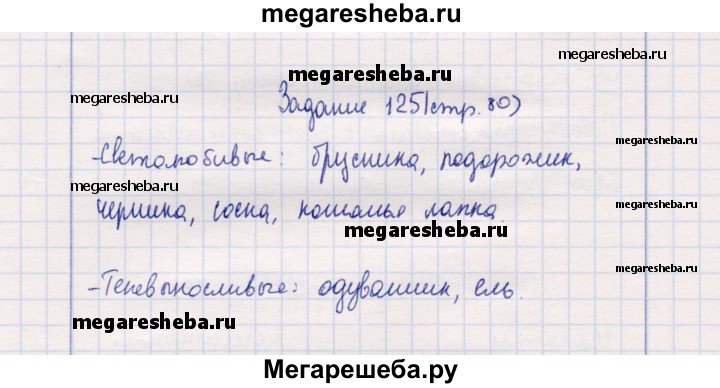 megaresheba.ru
megaresheba.ru
megaresheba.ru
megaresheba.ru
Задание 125(стр. 80)
megaresheba.ru
-Светолюбивые: брусника, подорожник,
megaresheba.ru
черника, сосна, кошачья лапка.
megaresheba.ru
megaresheba.ru
megaresheba.ru
-Теневыносливые: одуванчик, ель.
megaresheba.ru
megaresheba.ru
Мегарешеба.ру